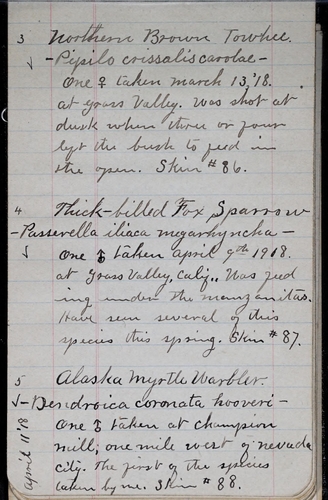 3 Northern Brown Towhee.
- Pipilo crissalis carolae -
One ♀ taken march 13, '18.
at Grass Valley. Was shot at
dusk when three or four
left the bush to feed in
the open. Skin # 86.
4 Thick-billed Fox Sparrow
- Passerella iliaca megarhyncha -
One ♂ taken april 9th 1918.
at Grass Valley, Calif., Was feed
ing under the manzanitas.
Have seen several of this
species this spring. Skin # 87.
5 Alaska Myrtle Warbler.
- Dendroica coronata hooveri -
One ♂ taken at champion
mill; one mile west of nevada
city. The first of the species
taken by me. Skin # 88.
april 11 '18